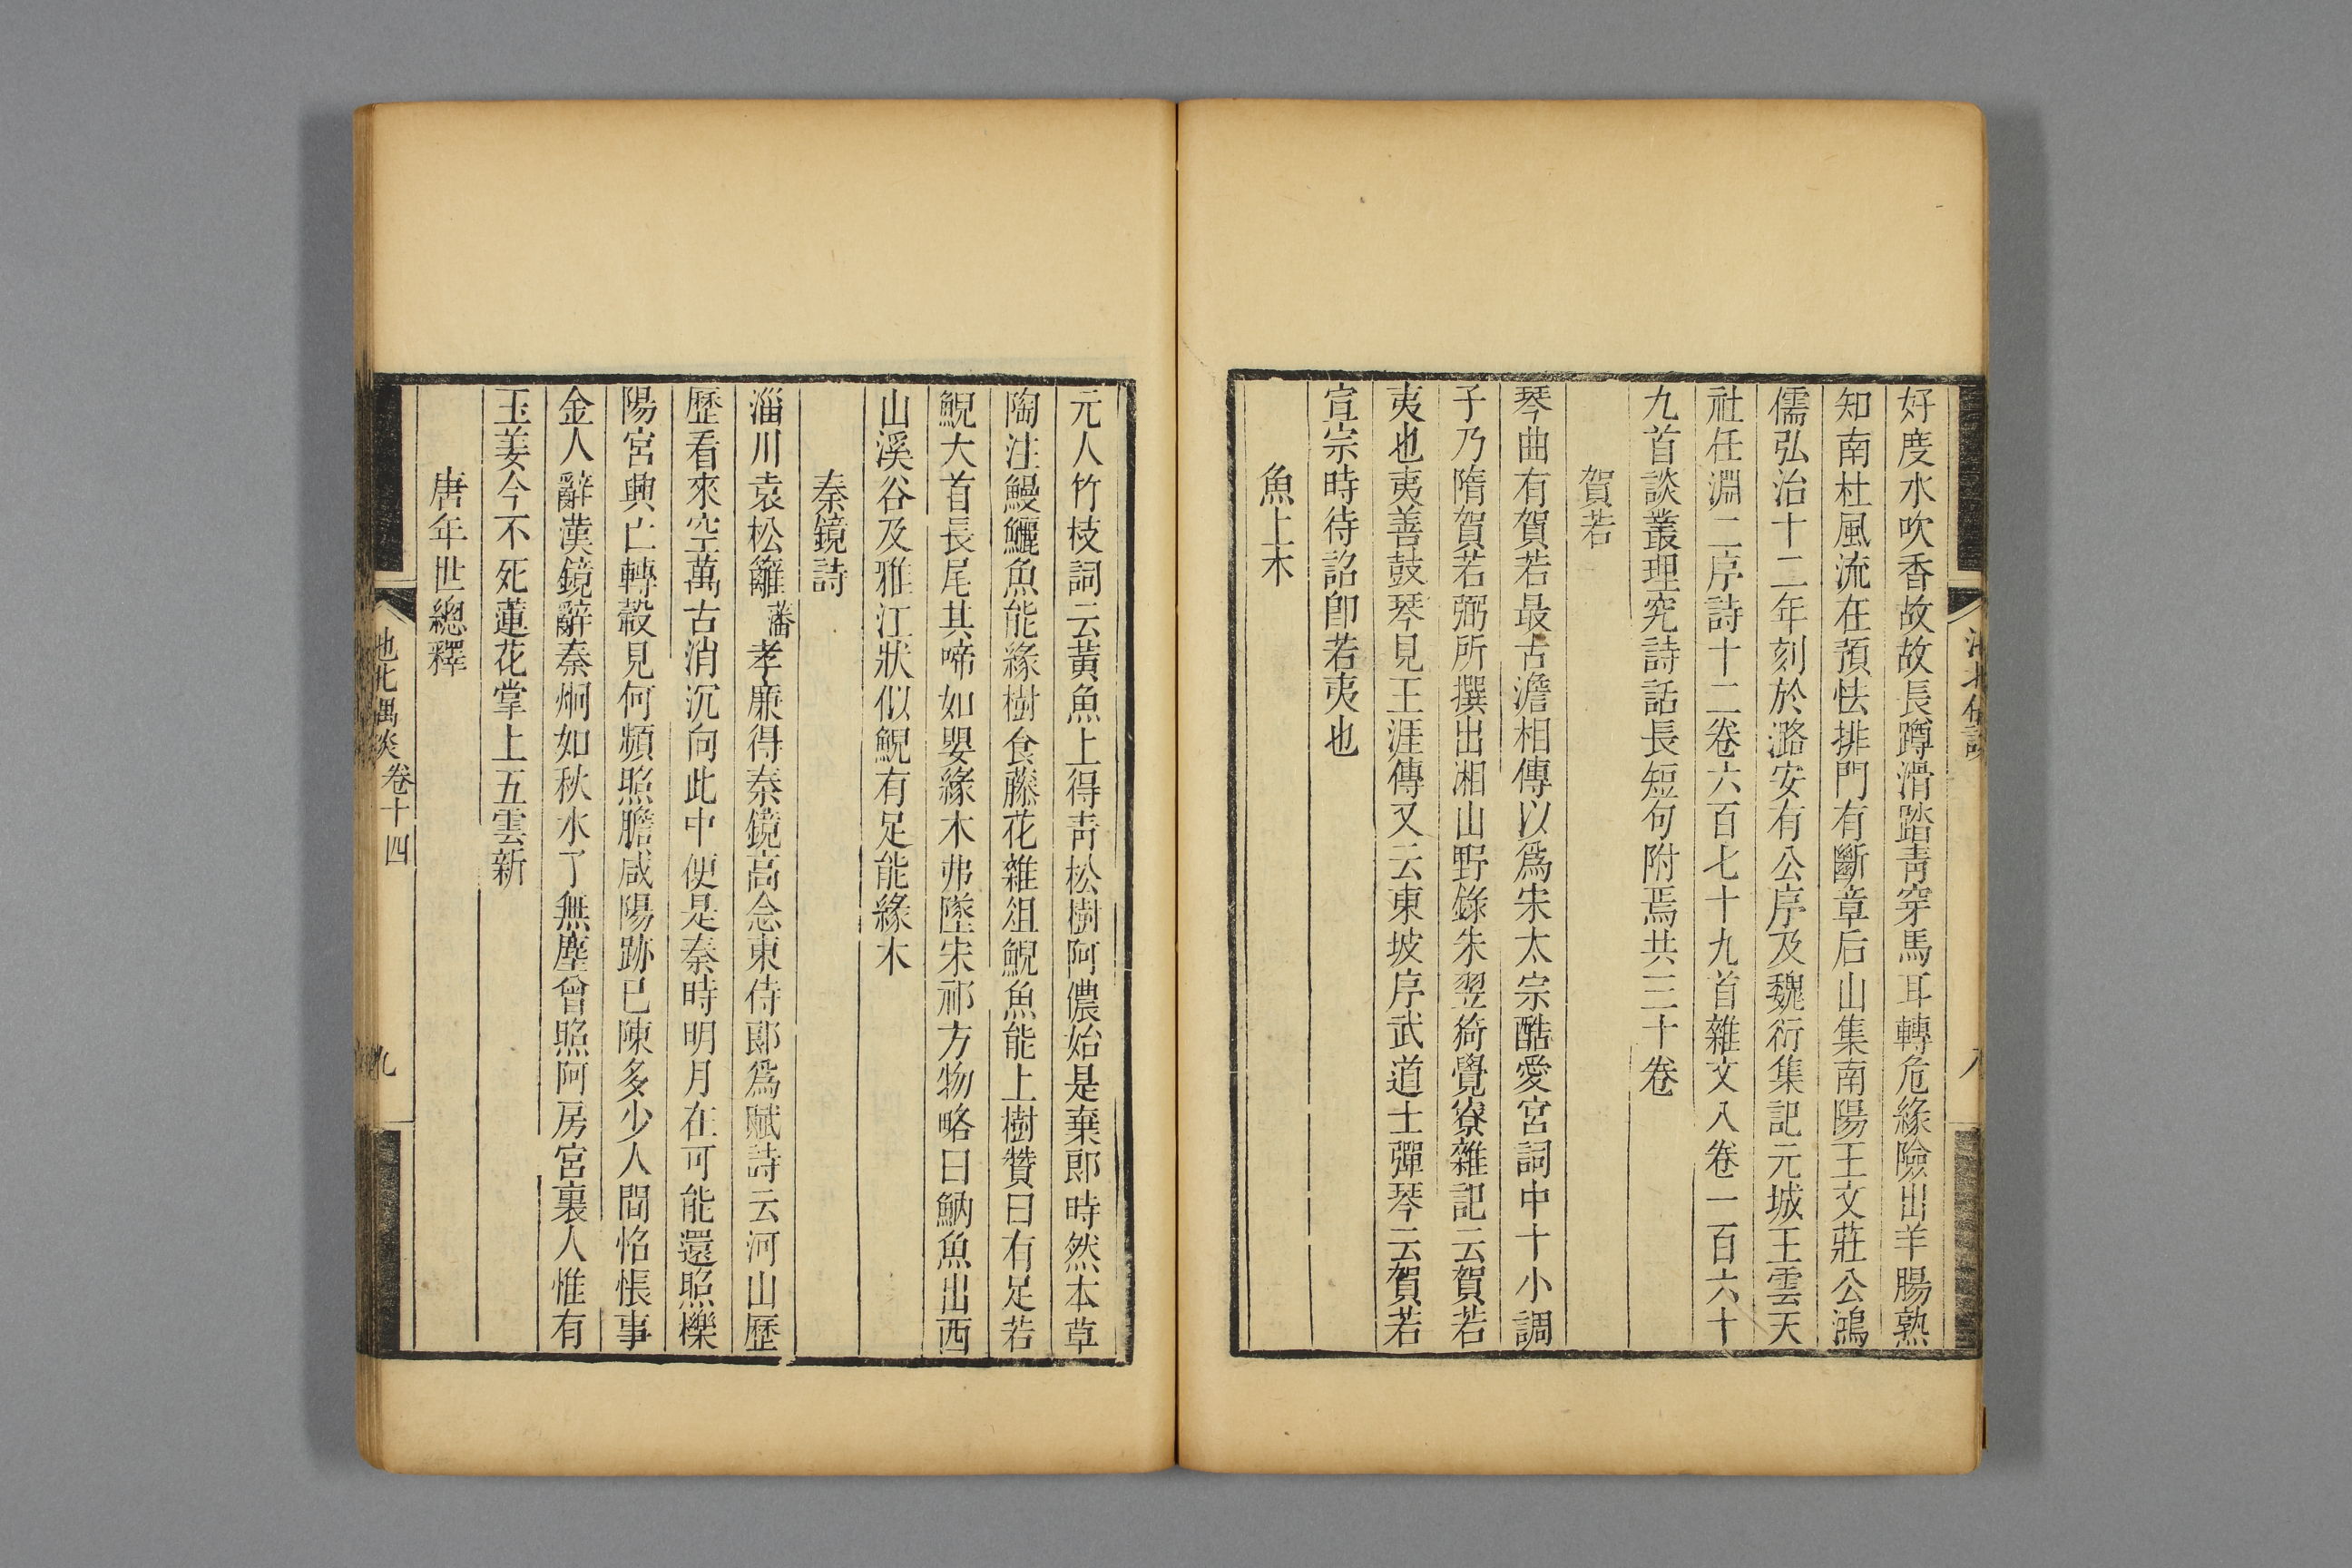 好度水吹香故故長蹲滑踏靑穿馬耳轉危緣險出羊腸熟
知南杜風流在預怯排門有斷章后山集南陽王文莊公鴻
儒弘治十二年刻於潞安有公序及魏衍集記元城王雲天
社任淵二序詩十二卷六百七十九首雜文八卷一百六十
九首談叢理究詩話長短句附焉共三十卷
賀若
琴曲有賀若最古澹相傳以爲宋太宗酷愛宮詞中十小調
子乃隋賀若弼所撰出湘山野錄朱翌猗覺寮雜記云賀若
夷也夷善鼓琴見王涯傳又云東坡序武道士彈琴云賀若
宣宗時待詔卽若夷也
魚上木
元人竹枝詞云黃魚上得靑松樹阿儂始是棄郞時然本草
陶注鰻鱺魚能緣樹食藤花雜俎鯢魚能上樹贊曰有足若
鯢大首長尾其啼如嬰緣木弗墜宋祁方物略曰魶魚出西
山溪谷及雅江狀似鯢有足能緣木
秦鏡詩
淄川袁松籬藩孝廉得秦鏡高念東侍郞爲賦詩云河山歷
歷看來空萬古消沉向此中便是秦時明月在可能還照櫟
陽宮興亡轉轂見何頻照膽咸陽跡已陳多少人間怊悵事
金人辭漢鏡辭秦烱如秋水了無塵曾照阿房宮裏人惟有
玉姜今不死蓮花掌上五雲新
唐年世總釋
池北偶談 卷十四 九